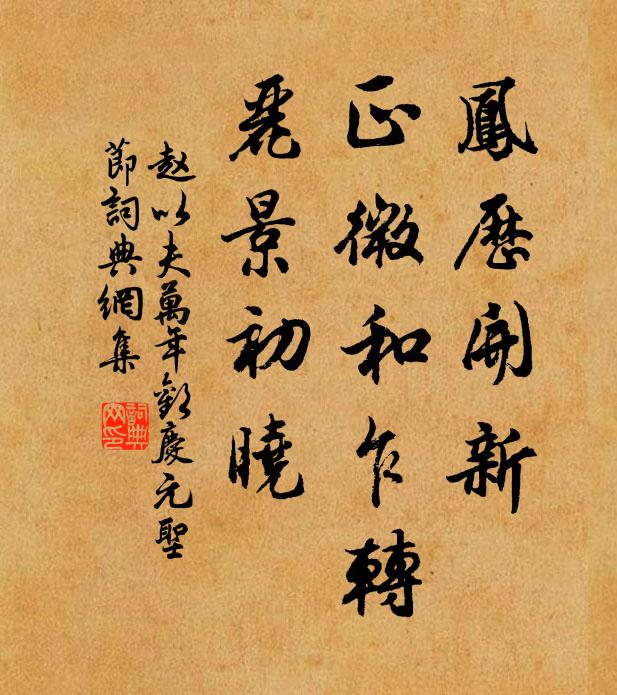 鳳曆開新
正微和乍轉
麗景初曉
赵以夫萬年歡慶元聖
節詞典網集
詞典網印